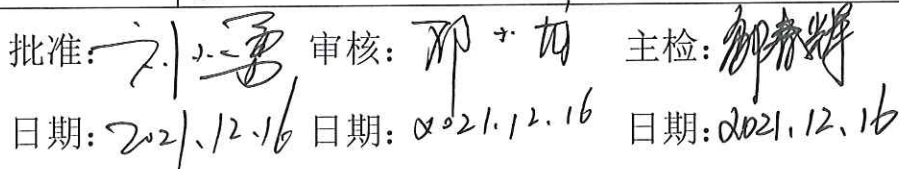 批准: 刘小勇 审核: 邓小 主检: 春辉
日期: 2021.12.16 日期: 2021.12.16 日期: 2021.12.16